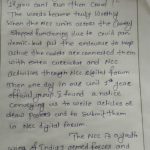 if you can't run then crawl
The words became truly worthy
when the NCC units across the country
stopped functioning due to covid pan
demic but for the endeavor to keep
alive the cadets are connected them
with extra calculus and NCC
activities through NCC digital forum
when one day in our unit's
official group I found a notice
conveying us to write articles or
draw posters and to submit them
in NCC digital forum.
The NCC is
wing of India's armed forces and